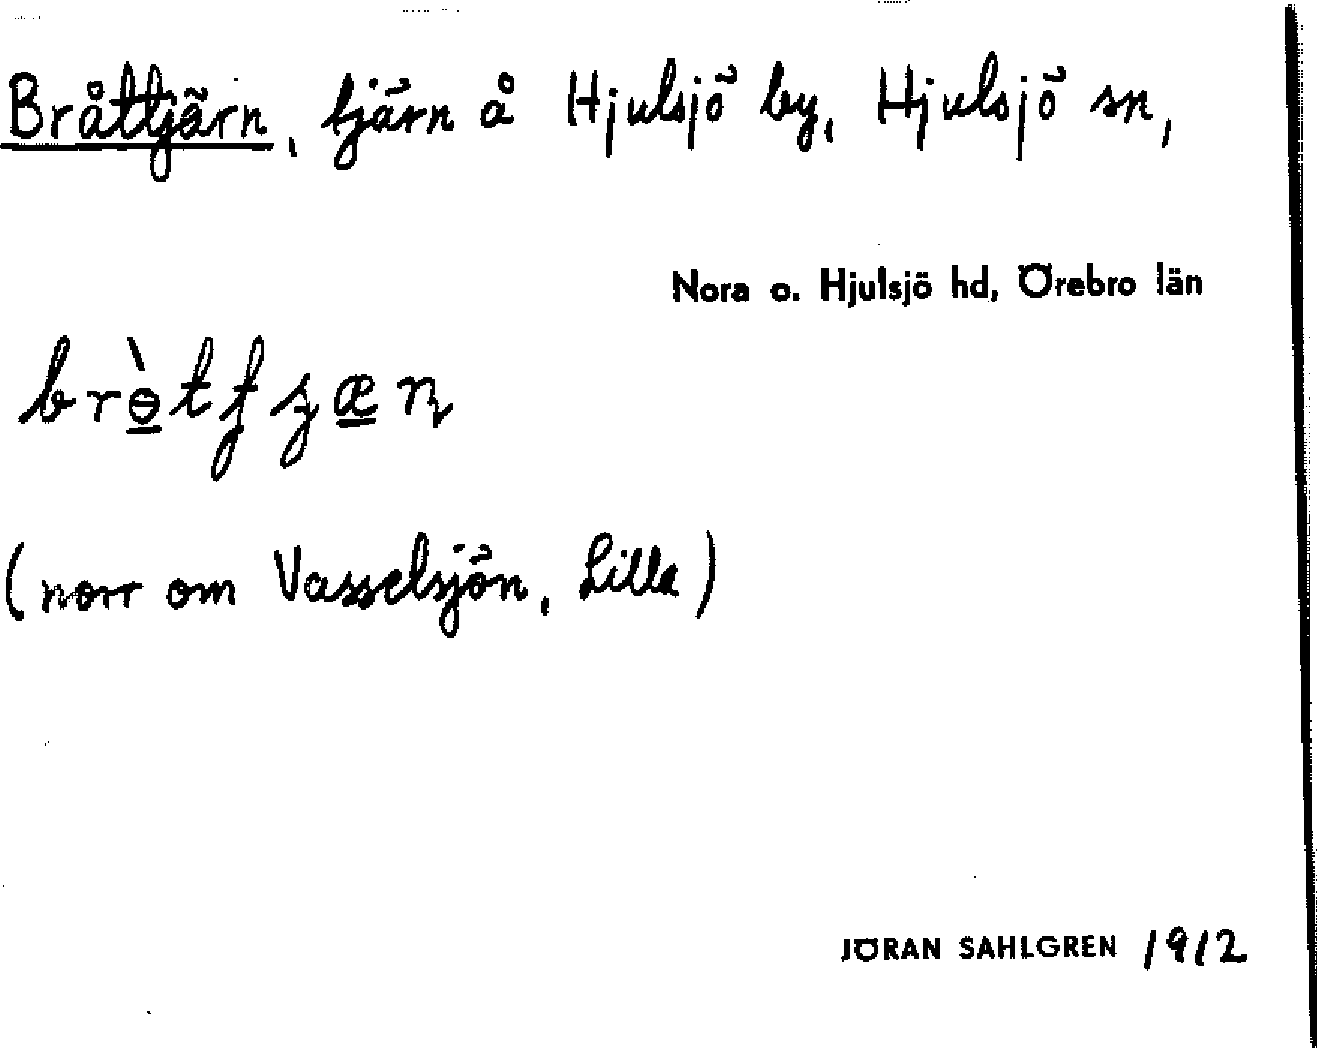 Bråttjärn, tjärn å Hjulsjö by, Hjulsjö sn,
Nora o. Hjulsjö hd, Örebro län
(norr om Vasselsjön, Lilla)
JÖRAN SAHLGREN 1912